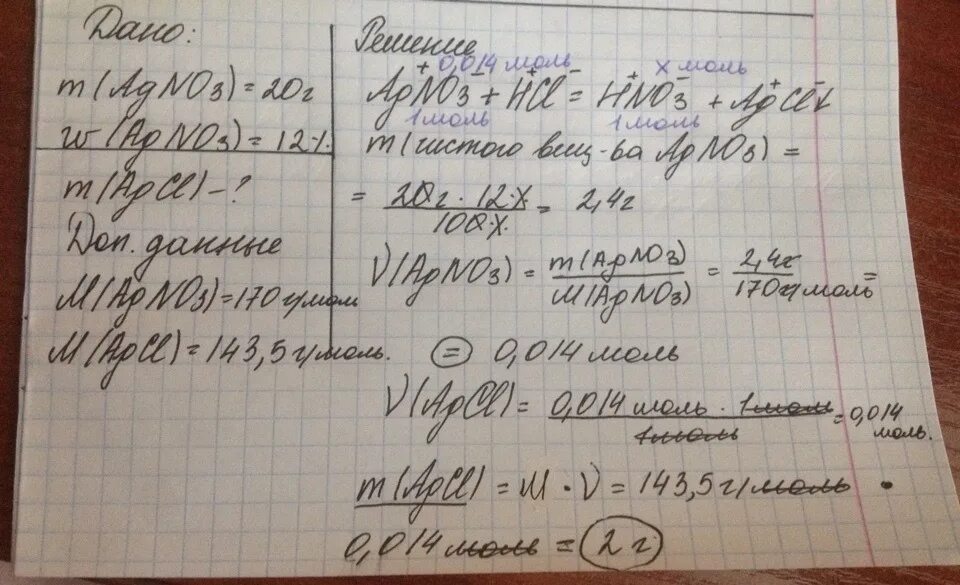 Дано:
m(AgNO3)=20г
w(AgNO3)=12%
m(AgCl)-?
Доп. данные
M(AgNO3)=170г/моль
M(AgCl)=143,5г/моль.
Решение
0,014 моль x моль
AgNO3+HCl=HNO3+AgCl↓
1моль 1моль
m(чистого вещ-ва AgNO3)=
= 20г · 12% / 100% = 2,4г
ν(AgNO3) = m(AgNO3) / M(AgNO3) = 2,4г / 170г/моль =
= 0,014 моль
ν(AgCl) = 0,014 моль · 1моль / 1моль = 0,014 моль.
m(AgCl) = M · ν = 143,5г/моль ·
0,014 моль = 2 г.